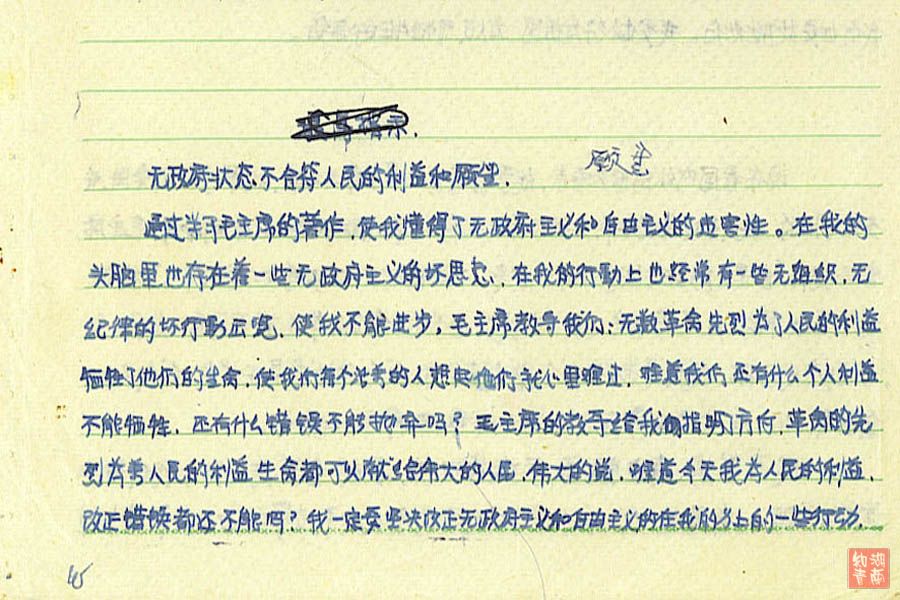 最高指示.
愿望
无政府状态不合符人民的利益和愿望.
通过学习毛主席的著作.使我懂得了无政府主义和自由主义的危害性。在我的
头脑里也存在着一些无政府主义的坏思想.在我的行動上也经常有一些无组织.无
纪律的坏行動出现.使我不能进步,毛主席教导我们:无数革命先烈为了人民的利益
牺牲了他们的生命,使我们每个活着的人想起他们就心里难过,难道我们还有什么个人利益
不能牺牲.还有什么错误不能抛弃吗?毛主席的教导给我们指明了方向,革命的先
烈为着人民的利益生命都可以献给伟大的人民,伟大的党.难道今天我为人民的利益.
改正错误都还不能吗?我一定要坚决改正无政府主义和自由主义的在我的身上的一些行动.
45
湖南知青